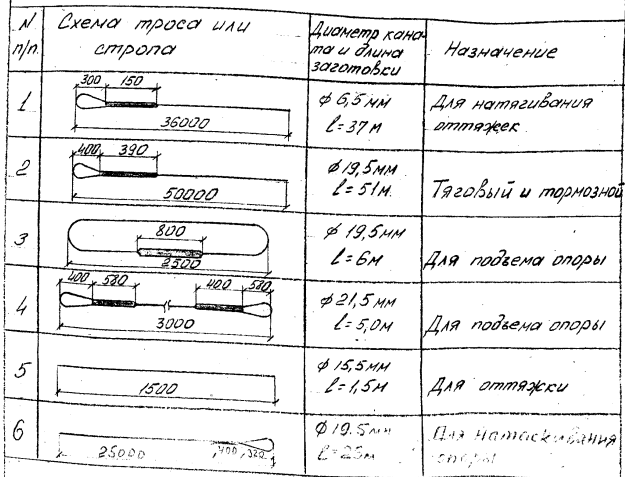 N п/п
Схема троса или стропа
Диаметр каната и длина заготовки
Назначение
1
300 150
36000
ϕ 6,5 мм
ℓ=37 м
Для натягивания
оттяжек
2
400 390
50000
ϕ 19,5мм
ℓ=51м.
Тяговый и тормозной
3
800
2500
ϕ 19,5мм
ℓ=6м
Для подъема опоры
4
400 580 400 580
3000
ϕ 21,5 мм
ℓ=5,0м
Для подъема опоры
5
1500
ϕ 15,5мм
ℓ=1,5м
Для оттяжки
6
25000 400 320
ϕ 19.5мм
ℓ=26м
Для натаскивания
опоры